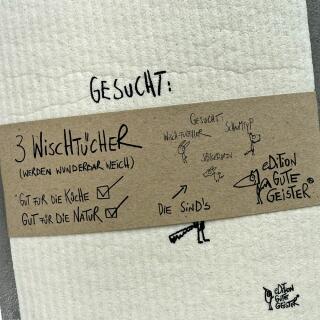 GESUCHT:
3 WISCHTÜCHER
(WERDEN WUNDERBAR WEICH)
GUT FÜR DIE KÜCHE
GUT FÜR DIE NATUR
GESUCHT:
WISCHTÜCHER
DIE SIND'S
EDITION
GUTE
GEISTER®
EDITION
GUTE
GEISTER